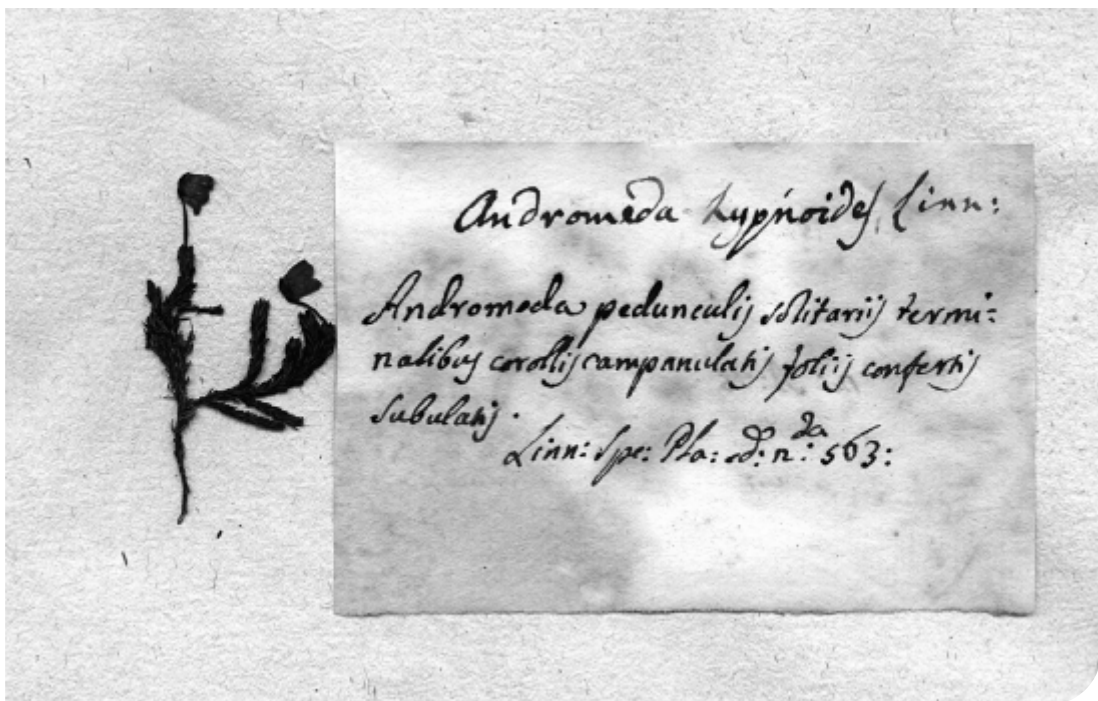 Andromeda hypnoides Linn:
Andromeda pedunculis solitariis termi:
nalibus corollis campanulatis foliis confertis
subulatis.
Linn: Spe: Pla: ed: 2:da 563: